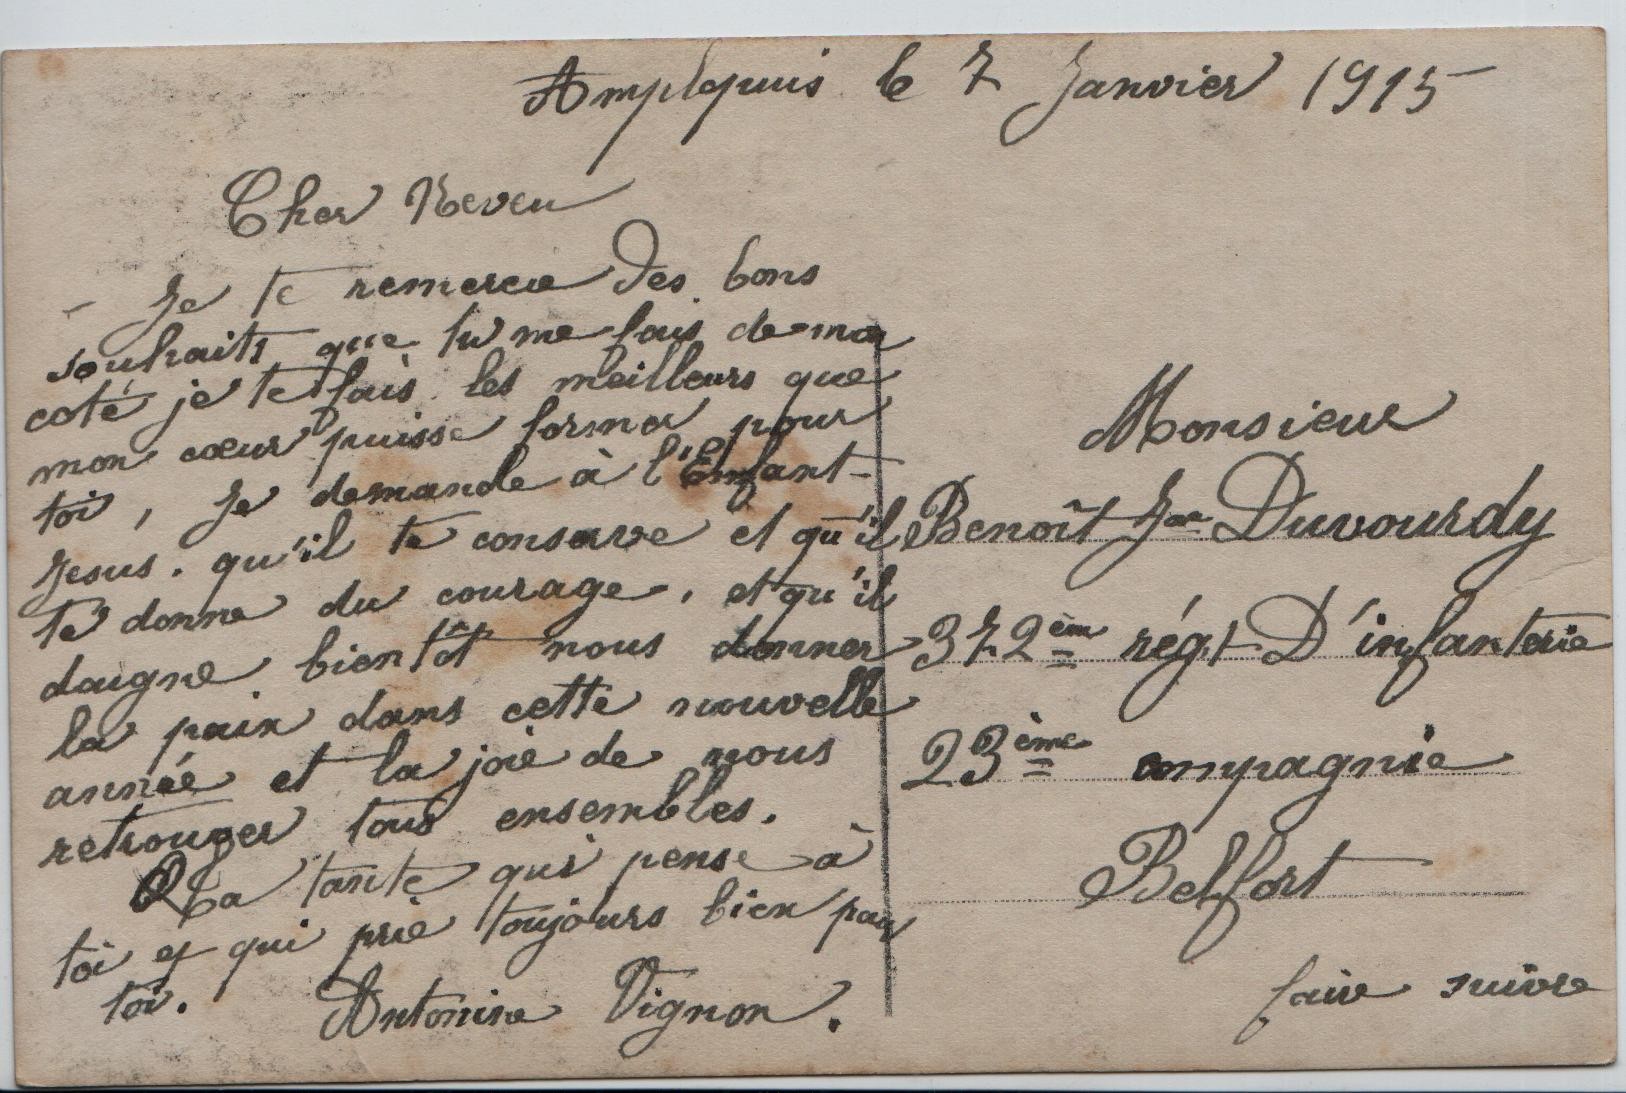 Amplepuis le 7 Janvier 1915
Cher Neveu
- Je te remercie des bons
souhaits que tu me fais de mon
coté je te fais les meilleurs que
mon cœur puisse former pour
toi, Je demande à l'Enfant-
Jesus. qu'il te conserve et qu'il
te donne du courage, et qu'il
daigne bientôt nous donner
la paix dans cette nouvelle
année et la joie de nous
retrouver tous ensembles.
Ta tante qui pense à
toi et qui prie toujours bien pour
toi. Antonine Vignon.
Monsieur
Benoît Duvourdy
372ème régt D'infanterie
23ème compagnie
Belfort
faire suivre